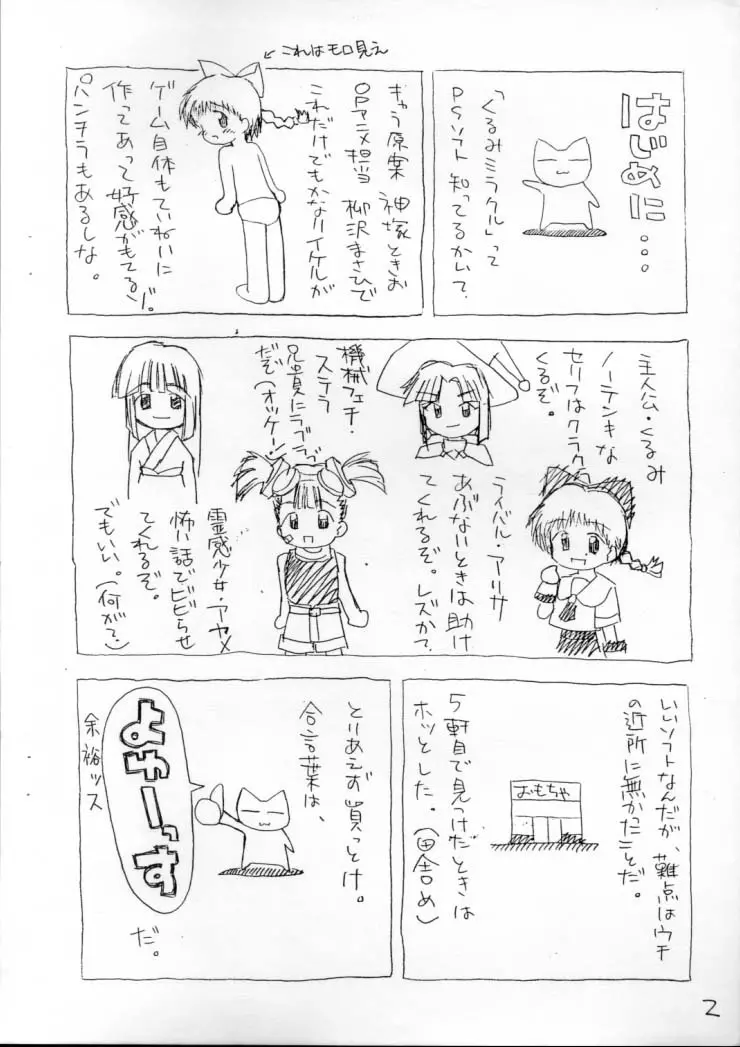 はじめに…
「くるみミラクル」って
PSソフト知ってるかい？
これはモロ見え
きゃら原案 神塚ときお
OPアニメ担当 柳沢まさひで
これだけでもかなりイケルが
ゲーム自体もていねいに
作ってあって好感がもてるゾ。
パンチラもあるしな。
主人公・くるみ
ノーテンキな
セリフはクラクラ
くるぞ。
ライバル・アリサ
あぶないときは助け
てくれるぞ。レズか？
機械フェチ・
ステラ
兄貴にラブラブ
だぞ(オッケー)
霊感少女・アヤメ
怖い話でビビらせ
てくれるぞ。
でもいい。(何が？)
いいソフトなんだが、難点はウチ
の近所に無かったことだ。
おもちゃ
5軒目で見つけたときは
ホッとした。(田舎め)
とりあえず買っとけ。
合言葉は、
よゆーっす
余裕ッス
だ。
2